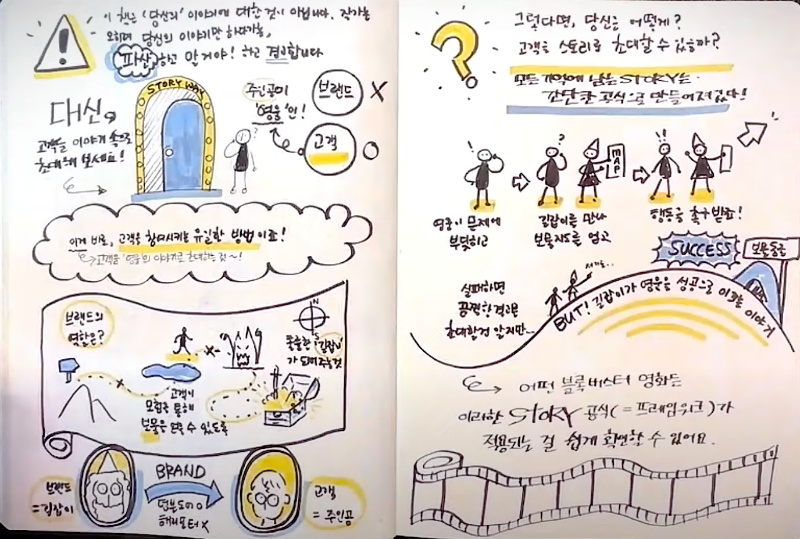 이 책은 '당신의' 이야기에 대한 것이 아닙니다. 작가는
오히려 당신의 이야기만 하다가는,
파산하고 말 거야! 하고 경고합니다
STORY WAY
대신,
고객을 이야기 속으로
초대해 보세요!
주인공이
'영웅'인!
브랜드
X
고객
O
이게 바로, 고객을 참여시키는 유일한 방법이죠!
고객을 '영웅'의 이야기로 초대하는 것~!
브랜드의
역할은?
N
훌륭한 '길잡이'
가 되어주는 것
고객이
모험을 통해
보물을 얻을 수 있도록
브랜드
=길잡이
BRAND
고객
=주인공
그렇다면, 당신은 어떻게?
고객을 스토리로 초대할 수 있을까?
모든 기억에 남는 STORY는
간단한 공식으로 만들어져있다!
?
!
MAP
!!
!
영웅이 문제에
부딪히고
길잡이를 만나
보물지도를 얻고
행동을 촉구받죠!
SUCCESS
보물동굴
실패하면
끔찍한 결과를
초래할것 같지만...
BUT! 길잡이가 영웅을 성공으로 이끄는 이야기
어떤 블록버스터 영화든
이러한 STORY 공식(=프레임워크)가
적용되는 걸 쉽게 확인할 수 있어요.